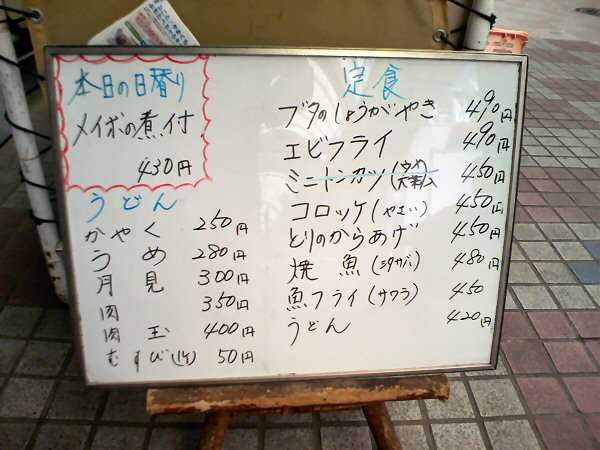 本日の日替り
メイボの煮付
430円
うどん
かやく 250円
うめ 280円
月見 300円
肉 350円
肉玉 400円
むすび(1ケ) 50円
定食
ブタのしょうがやき 490円
エビフライ 490円
ミニトンカツ 450円
コロッケ(やさい) 450円
とりのからあげ 450円
焼魚(シタサバ) 480円
魚フライ(サワラ) 450
うどん 420円